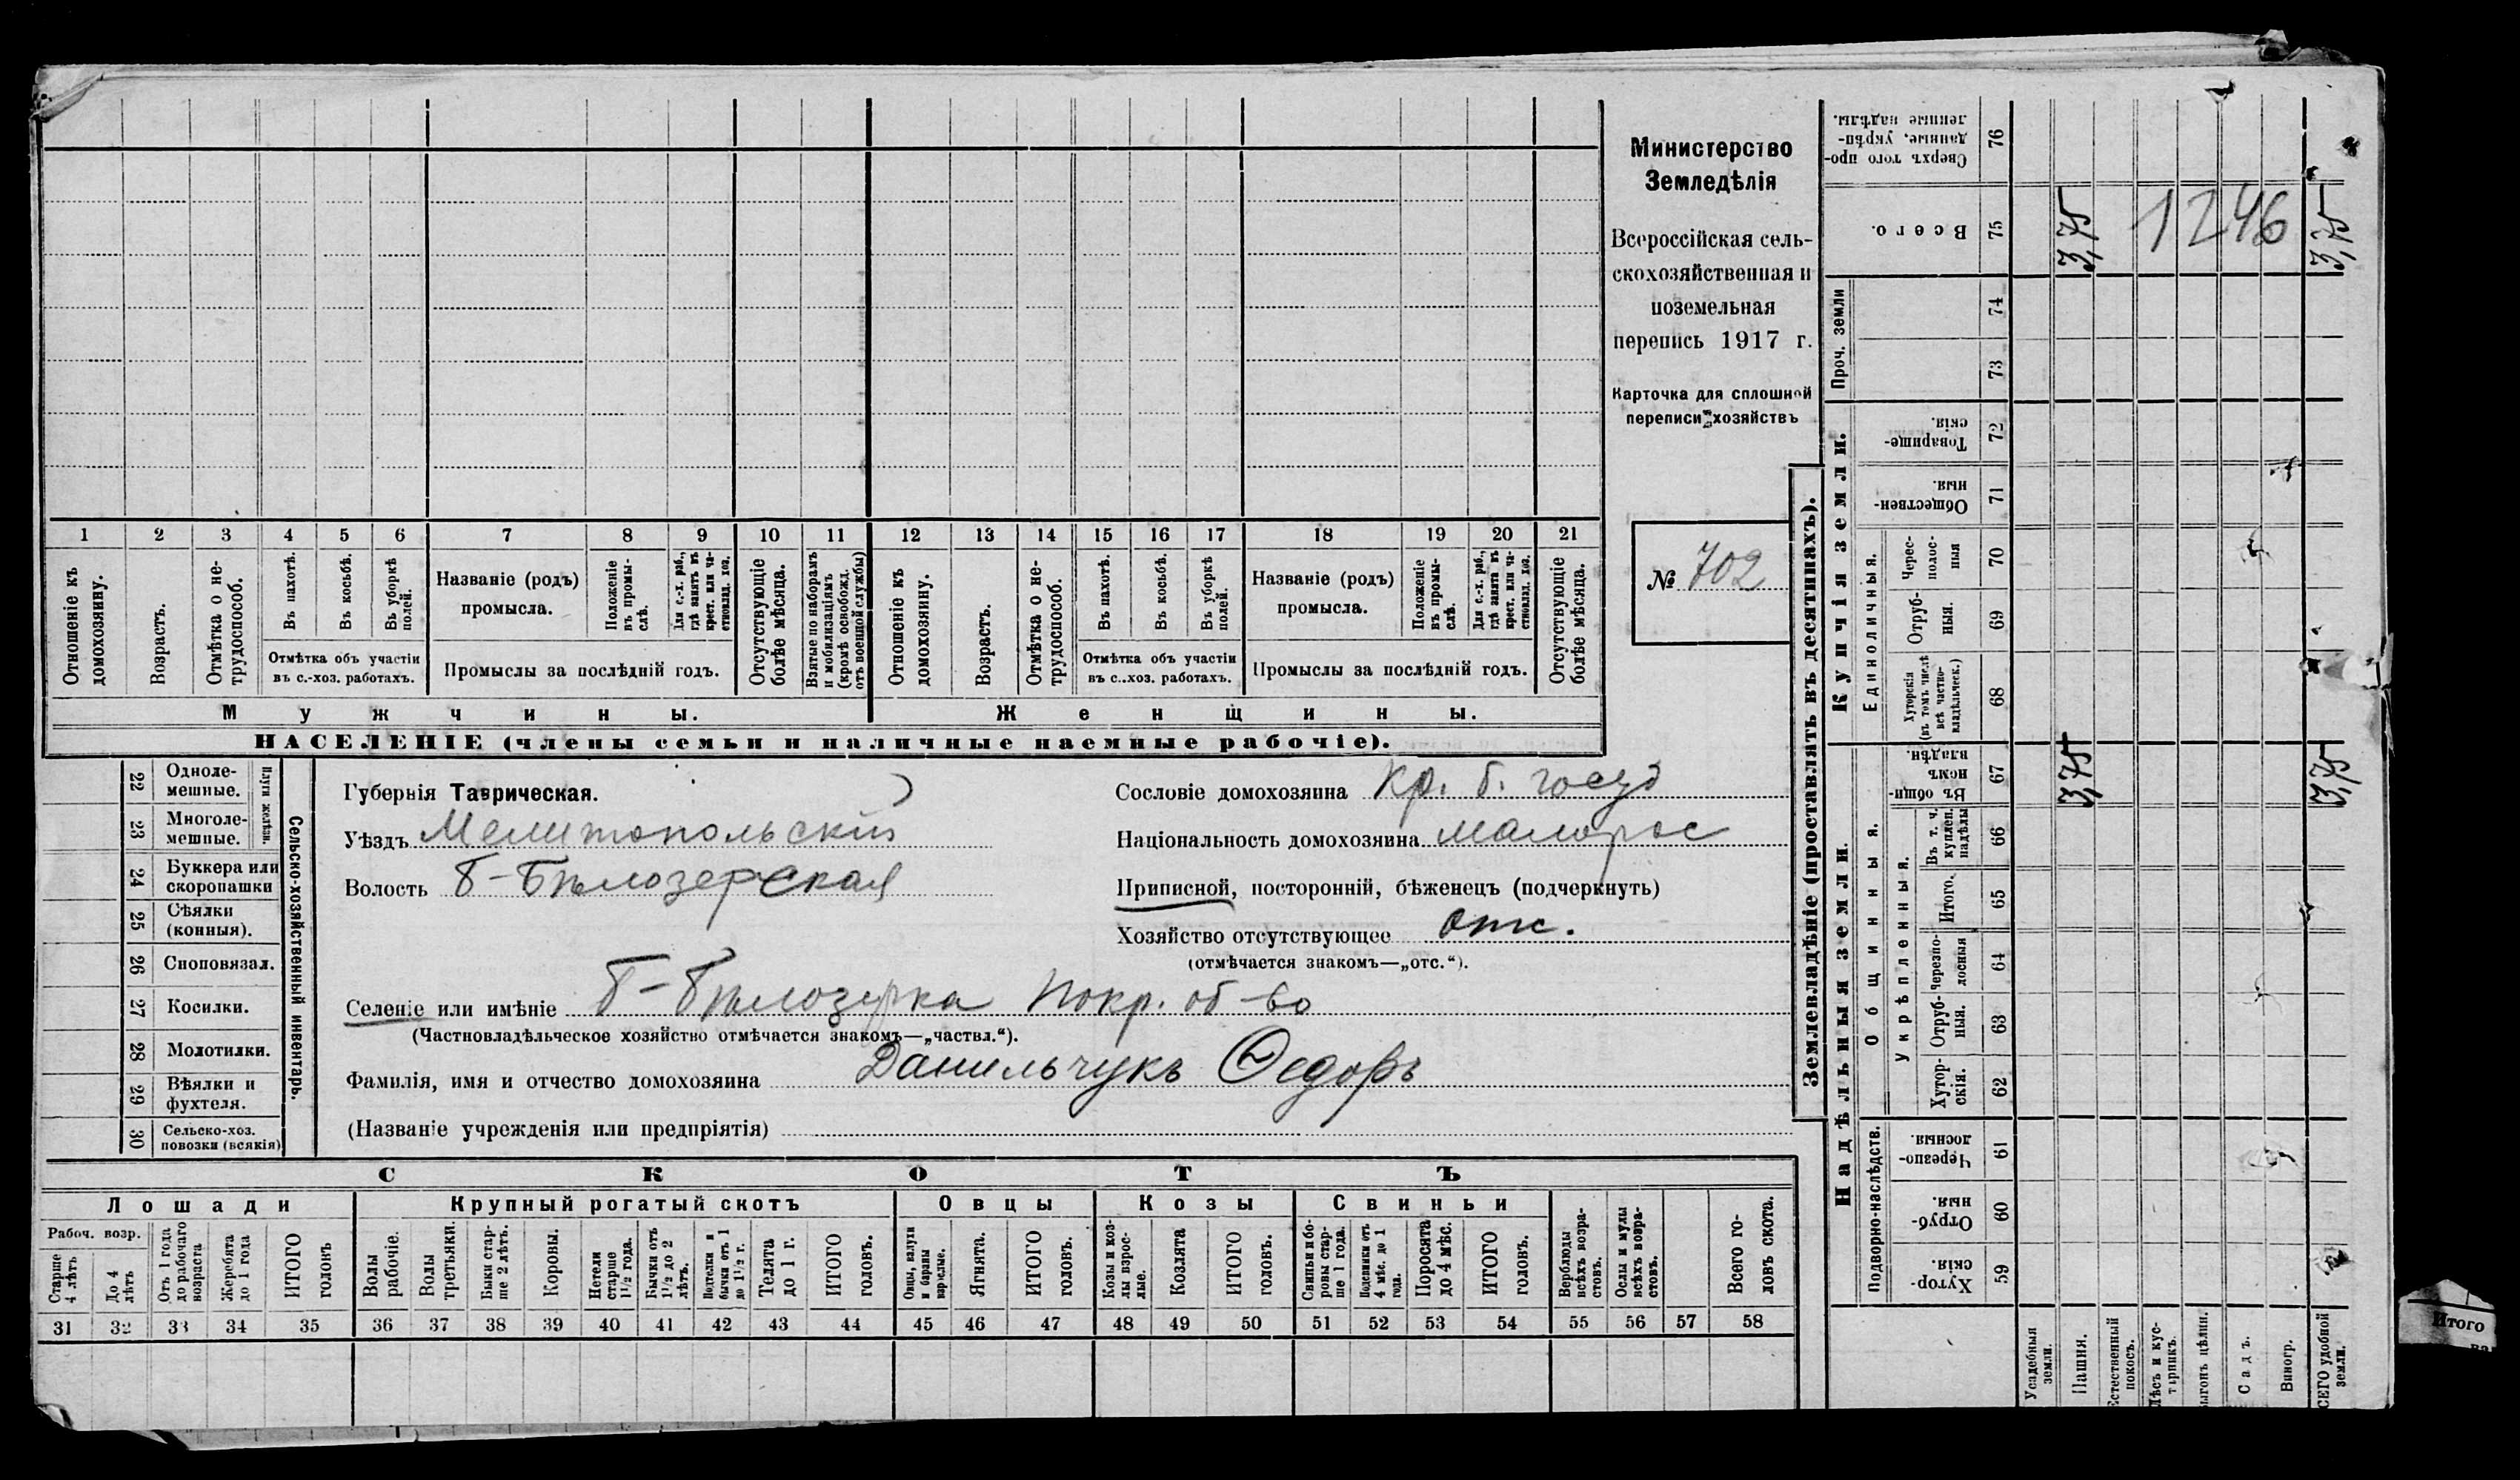 Министерство
Земледѣлія
Всероссійская сель-
скохозяйственная и
поземельная
перепись 1917 г.
Карточка для сплошной
переписи хозяйствъ
№ 702
1 2 3 4 5 6 7 8 9 10 11 12 13 14 15 16 17 18 19 20 21
Отношеніе къ домохозяину.
Возрастъ.
Отмѣтка о не-трудоспособ.
Въ пахотѣ.
Въ косьбѣ.
Въ уборкѣ полей.
Отмѣтка объ участіи
въ с.-хоз. работахъ.
Названіе (родъ)
промысла.
Положеніе въ промы-слѣ.
Для с.-х. раб., гдѣ занятъ въ крест. или ча-стновлад. хоз.
Промыслы за послѣдній годъ.
Отсутствующіе болѣе мѣсяца.
Взятые по наборамъ и мобилизаціямъ (кромѣ освобожд. отъ военной службы)
Отношеніе къ домохозяину.
Возрастъ.
Отмѣтка о не-трудоспособ.
Въ пахотѣ.
Въ косьбѣ.
Въ уборкѣ полей.
Отмѣтка объ участіи
въ с.-хоз. работахъ.
Названіе (родъ)
промысла.
Положеніе въ промы-слѣ.
Для с.-х. раб., гдѣ занята въ крест. или ча-стновлад. хоз.
Промыслы за послѣдній годъ.
Отсутствующіе болѣе мѣсяца.
Мужчины.
Женщины.
НАСЕЛЕНІЕ (члены семьи и наличные наемные рабочіе).
Сельско-хозяйственный инвентарь.
Плуги желѣзн.
22 Одноле-мешные.
23 Многоле-мешные.
24 Буккера или скоропашки
25 Сѣялки (конныя).
26 Сноповязал.
27 Косилки.
28 Молотилки.
29 Вѣялки и фухтеля.
30 Сельско-хоз. повозки (всякія)
Губернія Таврическая.
Уѣздъ Мелитопольскій
Волость Б-Бѣлозерская
Сословіе домохозяина Кр. б. госуд
Національность домохозяина малорос
Приписной, посторонній, бѣженецъ (подчеркнуть)
Хозяйство отсутствующее отс.
(отмѣчается знакомъ—„отс.“).
Селеніе или имѣніе Б-Бѣлозерка Покр. об-во
(Частновладѣльческое хозяйство отмѣчается знакомъ—„частвл.“).
Фамилія, имя и отчество домохозяина Данильчукъ Ѳедоръ
(Названіе учрежденія или предпріятія)
СКОТЪ
Лошади
Крупный рогатый скотъ
Овцы
Козы
Свиньи
Рабоч. возр.
Старше 4 лѣтъ
До 4 лѣтъ
Отъ 1 года до рабочаго возраста
Жеребята до 1 года
ИТОГО головъ
Волы рабочіе.
Волы третьяки.
Быки стар-ше 2 лѣтъ.
Коровы.
Нетели старше 1½ года.
Бычки отъ 1½ до 2 лѣтъ.
Подтелки и бычки отъ 1 до 1½ г.
Телята до 1 г.
ИТОГО головъ.
Овцы, валухи и бараны взрослые.
Ягнята.
ИТОГО головъ.
Козы и коз-лы взрос-лые.
Козлята
ИТОГО головъ.
Свиньи и бо-ровы стар-ше 1 года.
Подсвинки отъ 4 мѣс. до 1 года.
Поросята до 4 мѣс.
ИТОГО головъ.
Верблюды всѣхъ возра-стовъ.
Ослы и мулы всѣхъ возра-стовъ.
Всего го-ловъ скота.
31 32 33 34 35 36 37 38 39 40 41 42 43 44 45 46 47 48 49 50 51 52 53 54 55 56 57 58
Землевладѣніе (проставлять въ десятинахъ).
Сверхъ того про-данные, укрѣп-ленные надѣлы. 76
Всего. 75 3,75 1246 3,75
Проч. земли
74
73
Купчія земли.
Товарище-скія. 72
Обществен-ныя. 71
Единоличныя.
Черес-полос-ныя 70
Отруб-ныя. 69
Хуторскія (въ томъ числѣ всѣ частно-владѣльческ.) 68
Надѣльныя земли.
Общинныя.
Въ общи-номъ владѣн. 67 3,75 3,75
Укрѣпленныя.
Въ т. ч. куплен. надѣлы 66
Итого. 65
Черезпо-лосныя 64
Отруб-ныя. 63
Хутор-скія. 62
Подворно-наслѣдств.
Черезпо-лосныя. 61
Отруб-ныя. 60
Хутор-скія. 59
Усадебныя земли.
Пашня.
Естественный покосъ.
Лѣсъ и кус-тарникъ.
ыгонъ цѣлин.
Садъ.
Виногр.
СЕГО удобной земли.
Итого